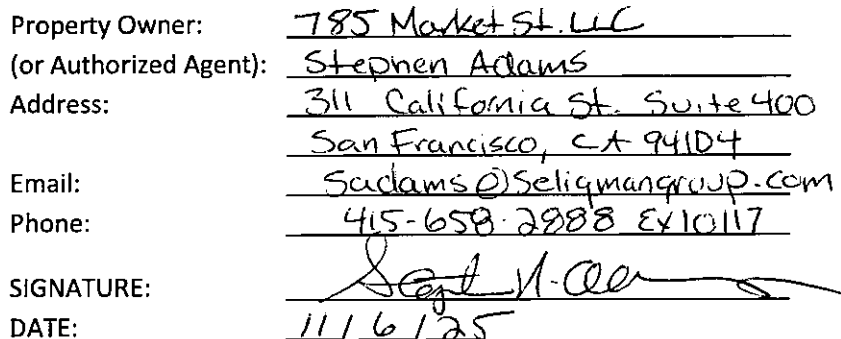 Property Owner: 785 Market St. LLC
(or Authorized Agent): Stephen Adams
Address: 311 California St. Suite 400
San Francisco, CA 94104
Email: Sadams@Seligmangroup.com
Phone: 415-658-2888 Ex10117
SIGNATURE:
DATE: 11/6/25